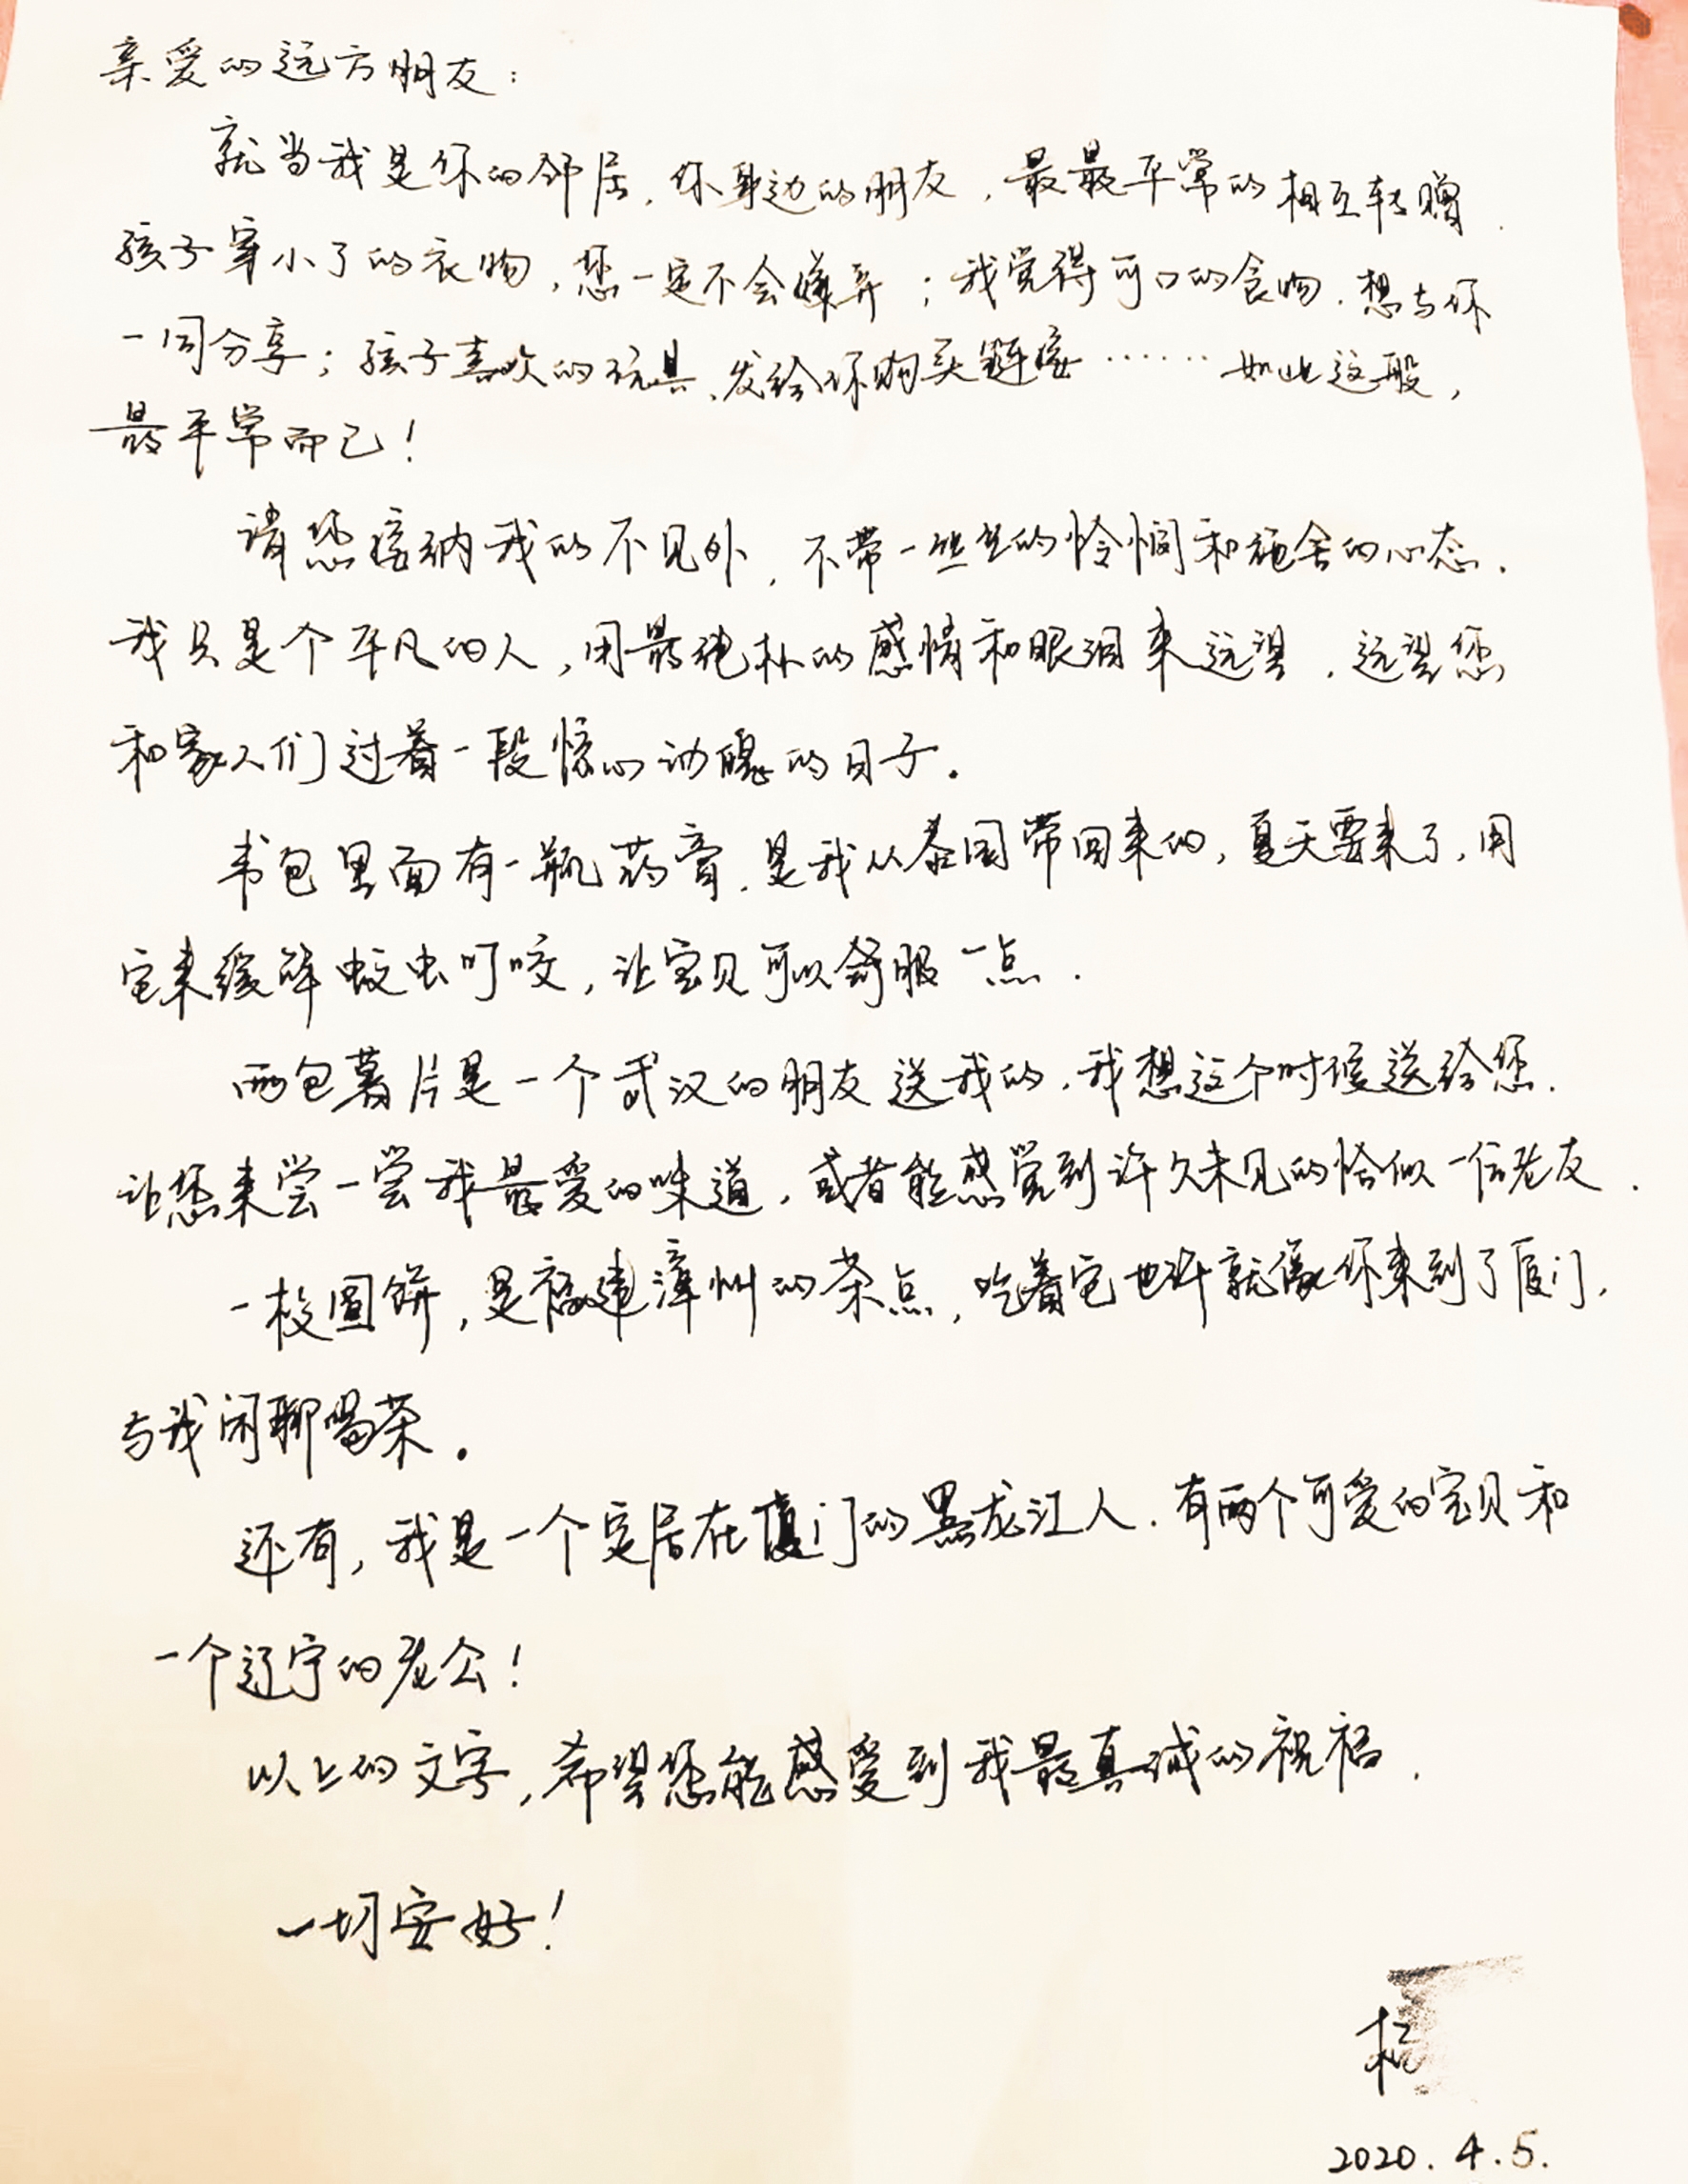 亲爱的远方朋友：
就当我是你的邻居，你身边的朋友，最最平常的相互转赠.
孩子穿小了的衣物，您一定不会嫌弃；我觉得可口的食物，想与你
一同分享；孩子喜欢的玩具、发给你购买链接……如此这般，
最平常而已！
请您接纳我的不见外，不带一丝丝的怜悯和施舍的心态.
我只是个平凡的人，用最纯朴的感情和眼泪来远望，远望您
和家人们过着一段惊心动魄的日子。
书包里面有一瓶药膏，是我从泰国带回来的，夏天要来了，用
它来缓解蚊虫叮咬，让宝贝可以舒服一点.
两包薯片是一个武汉的朋友送我的，我想这个时候送给您.
让您来尝一尝我最爱的味道，或者能感觉到许久未见的恰似一位老友.
一枚圆饼，是福建漳州的茶点，吃着它也许就像你来到了厦门，
与我闲聊喝茶。
还有，我是一个定居在厦门的黑龙江人.有两个可爱的宝贝和
一个辽宁的老公！
以上的文字，希望您能感受到我最真诚的祝福.
一切安好！
2020.4.5.